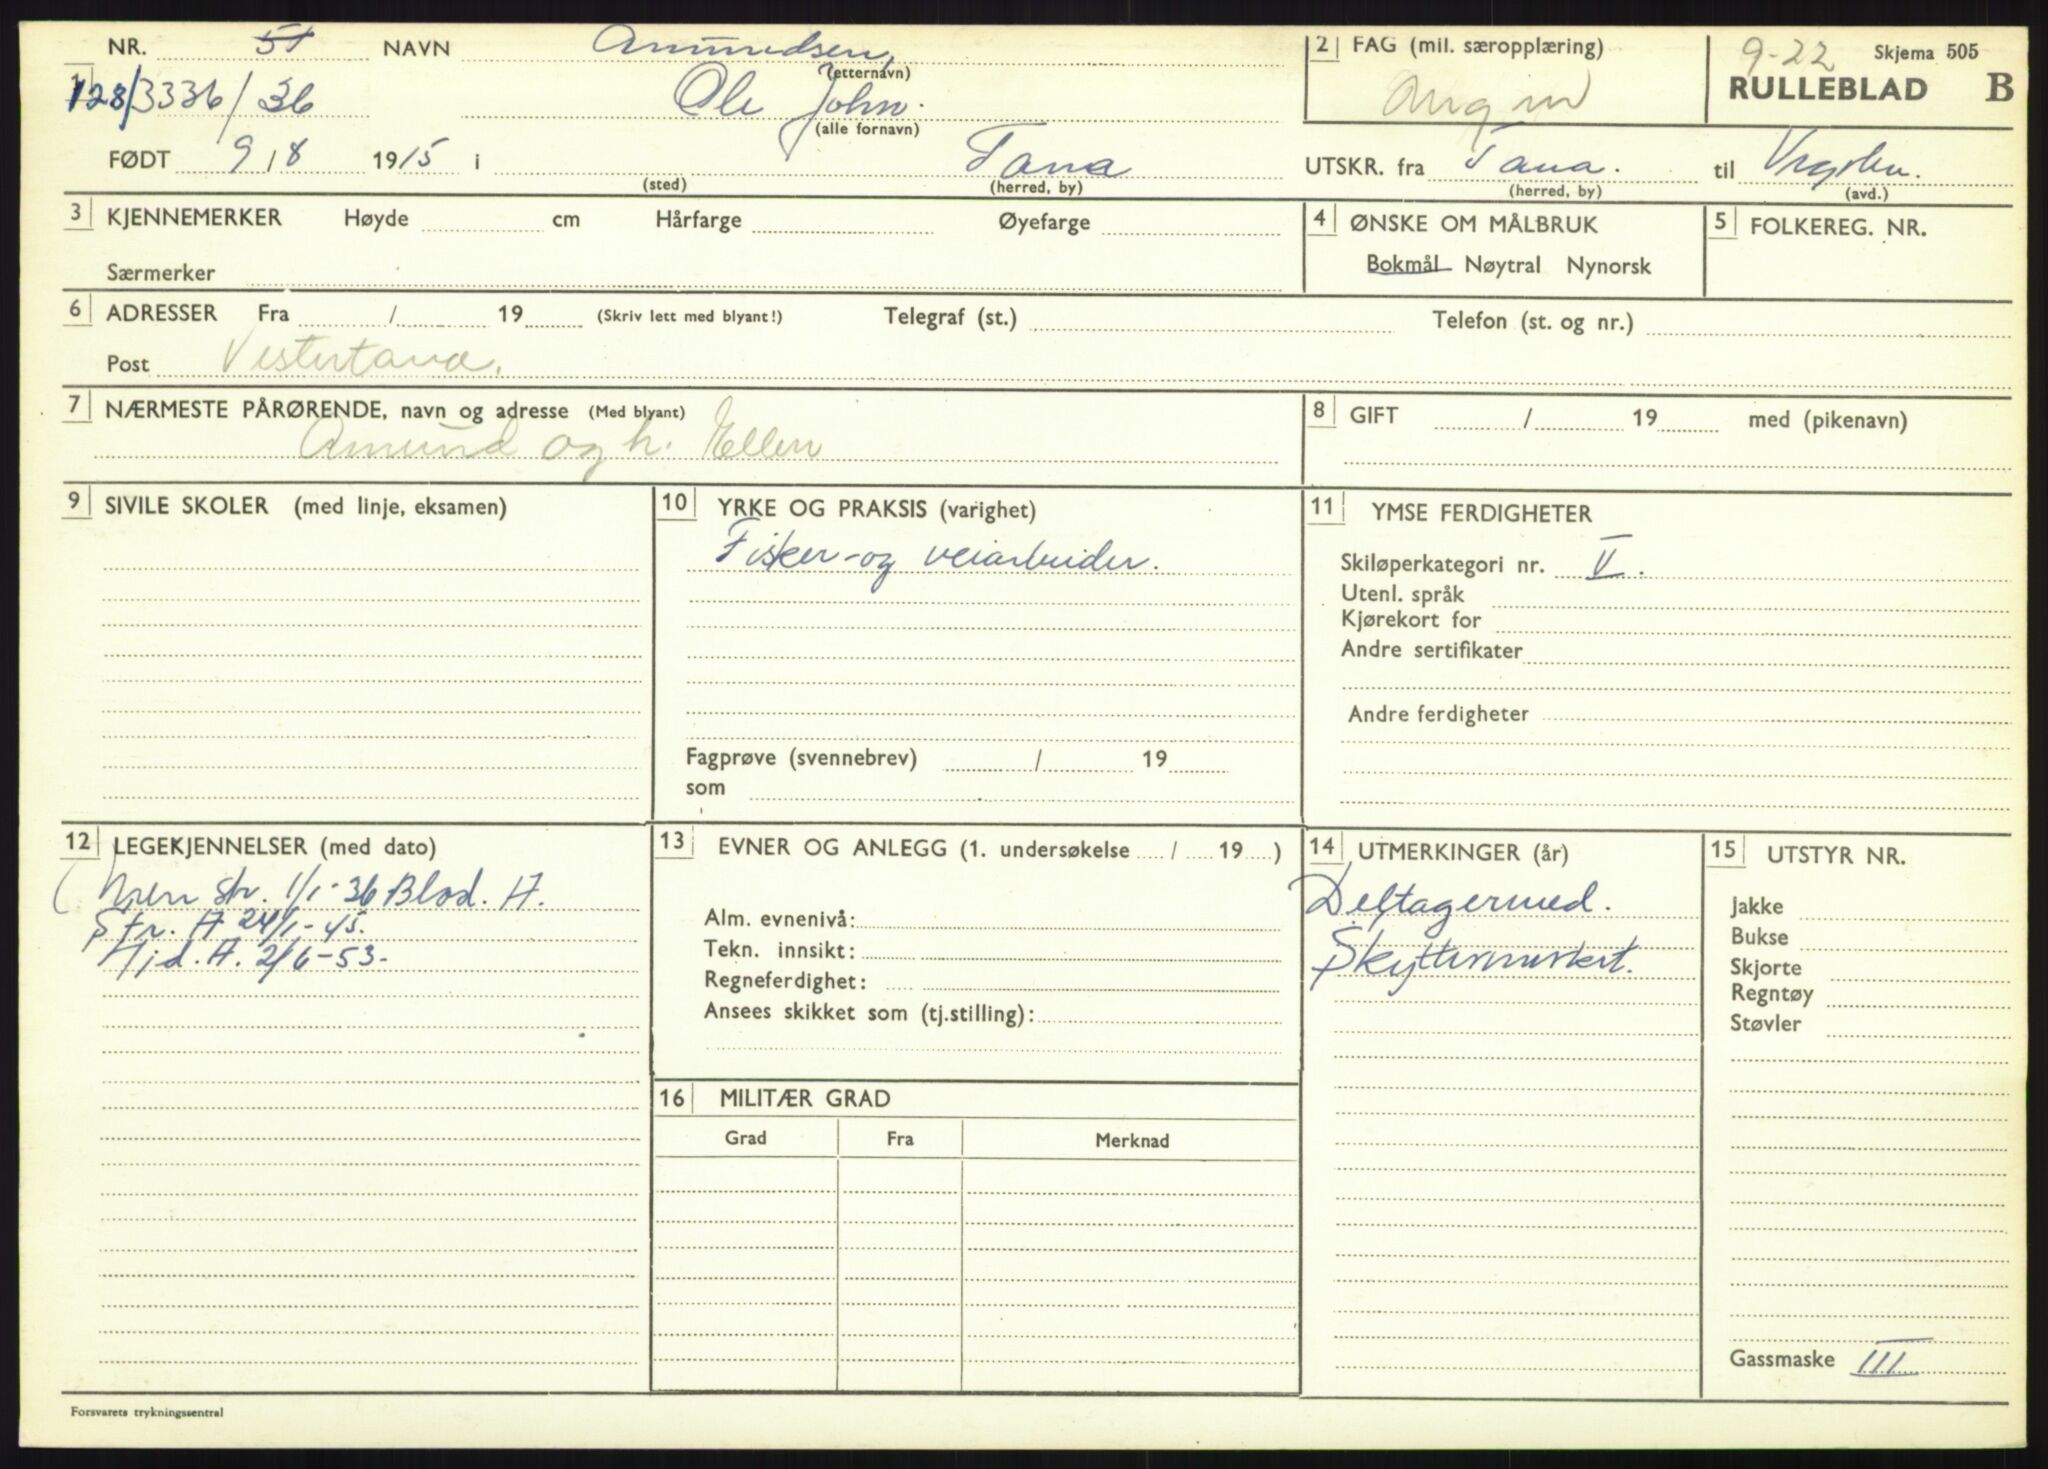 NR. 51 NAVN Amundsen,
(etternavn)
1 128/3336/36 Ole John.
(alle fornavn)
FØDT 9/8 1915 i Tana
(sted) (herred, by)
2 FAG (mil. særopplæring)
9-22 Skjema 505
RULLEBLAD B
UTSKR. fra Tana. til
(herred, by) (avd.)
3 KJENNEMERKER Høyde cm Hårfarge Øyefarge
Særmerker
4 ØNSKE OM MÅLBRUK
Bokmål Nøytral Nynorsk
5 FOLKEREG. NR.
6 ADRESSER Fra / 19 (Skriv lett med blyant!) Telegraf (st.) Telefon (st. og nr.)
Post Vestertana.
7 NÆRMESTE PÅRØRENDE, navn og adresse (Med blyant)
Amund og h. Ellen
8 GIFT / 19 med (pikenavn)
9 SIVILE SKOLER (med linje, eksamen)
10 YRKE OG PRAKSIS (varighet)
Fisker- og veiarbeider.
Fagprøve (svennebrev) / 19
som
11 YMSE FERDIGHETER
Skiløperkategori nr. V.
Utenl. språk
Kjørekort for
Andre sertifikater
Andre ferdigheter
12 LEGEKJENNELSER (med dato)
str. 1/1-36 A.
Str. A 24/1-45.
Hjd. A. 2/6-53.
13 EVNER OG ANLEGG (1. undersøkelse / 19 )
Alm. evnenivå:
Tekn. innsikt:
Regneferdighet:
Ansees skikket som (tj.stilling):
14 UTMERKINGER (år)
Deltagermed.
Skyttermerket.
15 UTSTYR NR.
Jakke
Bukse
Skjorte
Regntøy
Støvler
Gassmaske III
16 MILITÆR GRAD
Grad Fra Merknad
Forsvarets trykningssentral